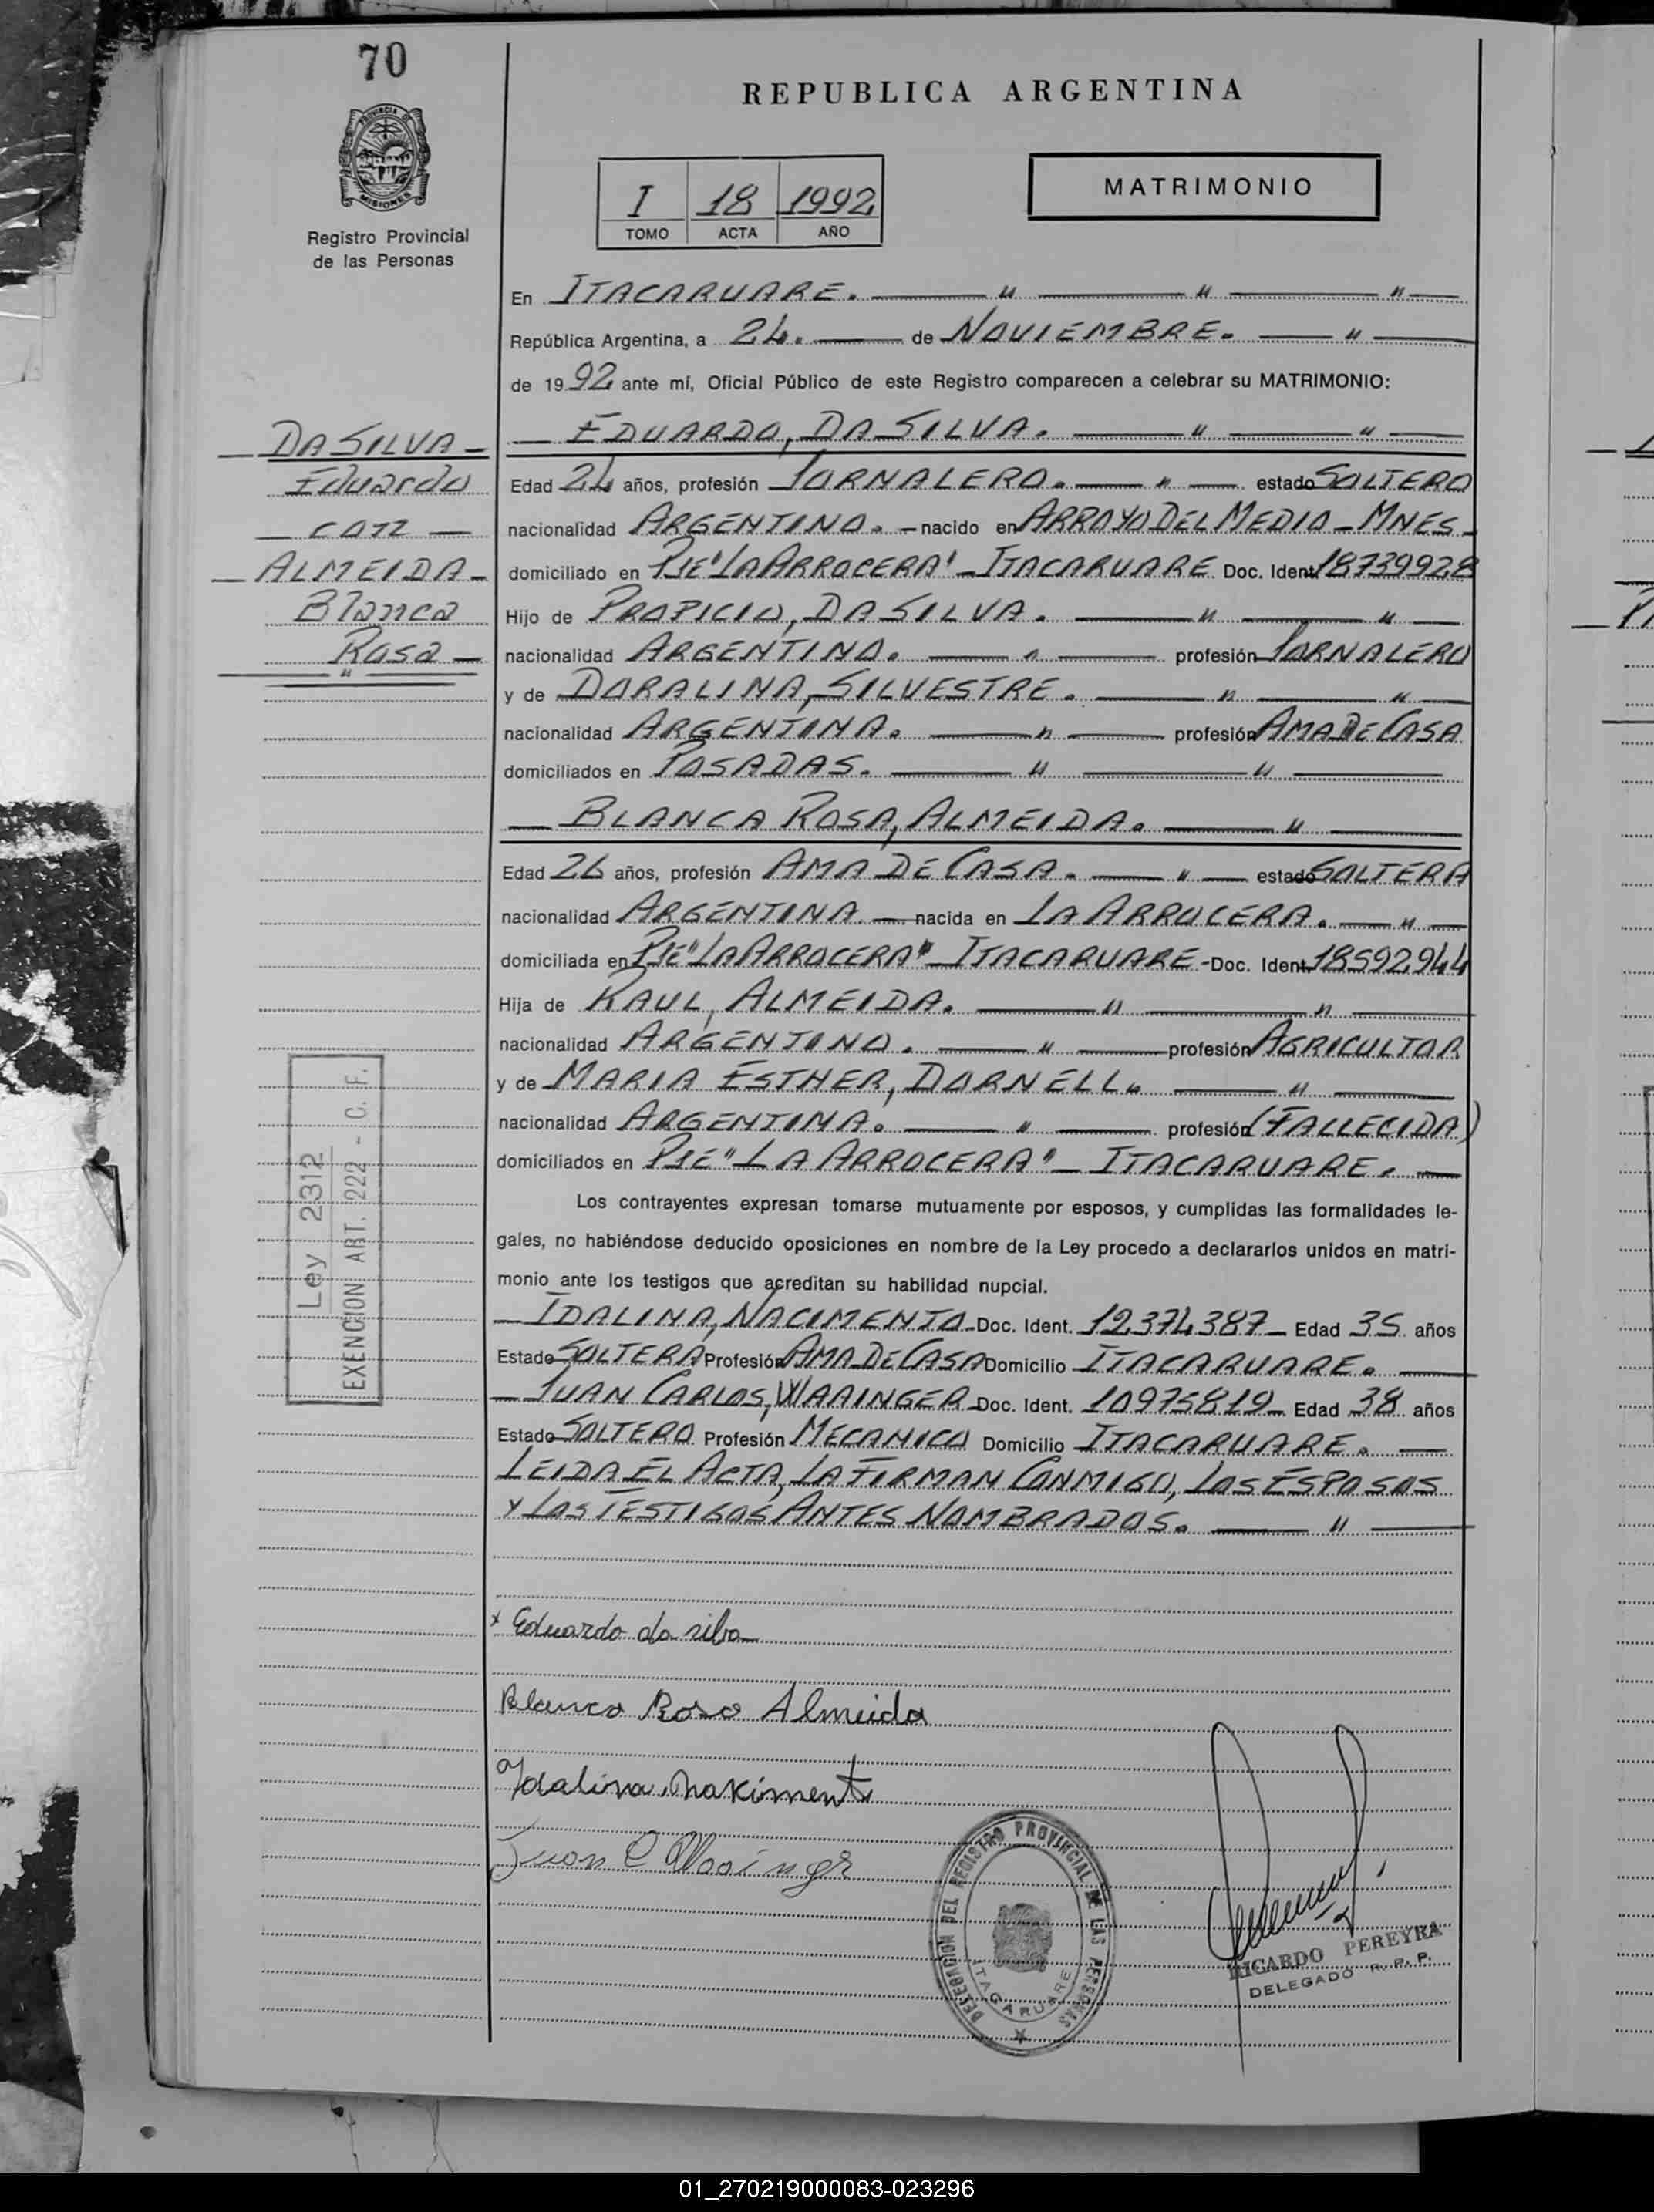 70
REPUBLICA ARGENTINA
PROVINCIA D
MISIONES
Registro Provincial
de las Personas
I 18 1992
TOMO ACTA AÑO
MATRIMONIO
En ITACARUARE. — " — " — " —
República Argentina, a 24. — de NOVIEMBRE. — " —
de 1992 ante mí, Oficial Público de este Registro comparecen a celebrar su MATRIMONIO:
— EDUARDO, DA SILVA. — " — " —
Edad 24 años, profesión JORNALERO. — " — estado SOLTERO
nacionalidad ARGENTINO. — nacido en ARROYO DEL MEDIO - MNES -
domiciliado en PJE "LA ARROCERA" - ITACARUARE Doc. Ident. 18739928
Hijo de PROPICIO, DA SILVA. — " — " —
nacionalidad ARGENTINO. — " — profesión JORNALERO
y de DORALINA, SILVESTRE. — " — " —
nacionalidad ARGENTINA. — " — profesión AMA DE CASA
domiciliados en POSADAS. — " — " —
— BLANCA ROSA, ALMEIDA. — " —
Edad 26 años, profesión AMA DE CASA. — " — estado SOLTERA
nacionalidad ARGENTINA — nacida en LA ARROCERA. — " —
domiciliada en PJE "LA ARROCERA" - ITACARUARE - Doc. Ident. 18592944
Hija de RAUL, ALMEIDA. — " — " —
nacionalidad ARGENTINO. — " — profesión AGRICULTOR
y de MARIA ESTHER, DORNELL. — " —
nacionalidad ARGENTINA. — " — profesión (FALLECIDA)
domiciliados en PJE "LA ARROCERA" - ITACARUARE. —
Los contrayentes expresan tomarse mutuamente por esposos, y cumplidas las formalidades le-
gales, no habiéndose deducido oposiciones en nombre de la Ley procedo a declararlos unidos en matri-
monio ante los testigos que acreditan su habilidad nupcial.
— IDALINA, NACIMENTO - Doc. Ident. 12374387 - Edad 35 años
Estado SOLTERA Profesión AMA DE CASA Domicilio ITACARUARE. —
— JUAN CARLOS, WAAINGER - Doc. Ident. 10975819 - Edad 38 años
Estado SOLTERO Profesión MECANICO Domicilio ITACARUARE. —
LEIDA EL ACTA, LA FIRMAN CONMIGO, LOS ESPOSOS
Y LOS TESTIGOS ANTES NOMBRADOS. — " —
x Eduardo da silva
Blanca Rosa Almeida
Idalina Nakimento
Juan C Waainger
DA SILVA -
Eduardo
— con —
— ALMEIDA -
Blanca
Rosa —
"
Ley 2312
EXENCION ART. 222 - C. F.
DELEGACION DEL REGISTRO PROVINCIAL DE LAS PERSONAS
ITACARUARE
RICARDO PEREYRA
DELEGADO R. P. P.
01_270219000083-023296